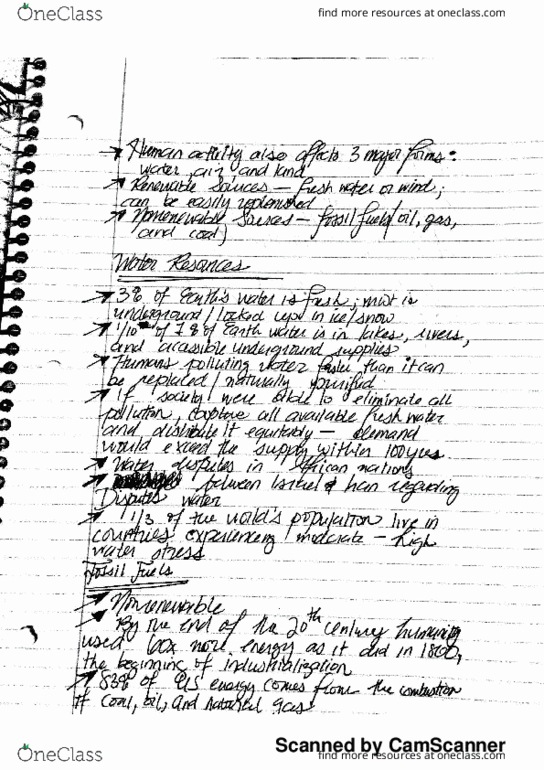 OneClass
find more resources at oneclass.com
→ Human activity also affects 3 major forms:
water, air and land
→ Renewable Sources — fresh water or wind;
can be easily replenished
→ Nonrenewable Sources — fossil fuel (oil, gas,
and coal)
Water Resources
→ 3% of Earth's water is fresh; most is
underground / locked up in ice/snow
→ 1/10th of 1% of Earth water is in lakes, rivers,
and accessible underground supplies
→ Humans polluting water faster than it can
be replaced / naturally purified
→ If society were able to eliminate all
pollution, capture all available fresh water
and distribute it equitably — demand
would exceed the supply within 100 yrs.
→ Water disputes in African nations
→ between Israel & Iran regarding
Disputes water
→ 1/3 of the world's population live in
countries experiencing moderate - high
water stress
Fossil Fuels
→ Nonrenewable
→ By the end of the 20th century humanity
used 60x more energy as it did in 1800,
the beginning of industrialization
→ 83% of US energy comes from the combustion
of coal, oil, and natural gas.
Scanned by CamScanner
OneClass
find more resources at oneclass.com